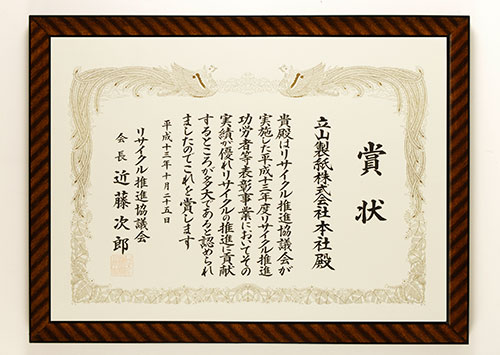 賞状
立山製紙株式会社本社殿
貴殿はリサイクル推進協議会が
実施した平成十三年度リサイクル推進
功労者等表彰事業においてその
実績が優れリサイクルの推進に貢献
するところが多大であると認められ
ましたのでこれを賞します
平成十三年十月二十五日
リサイクル推進協議会
会長 近藤次郎